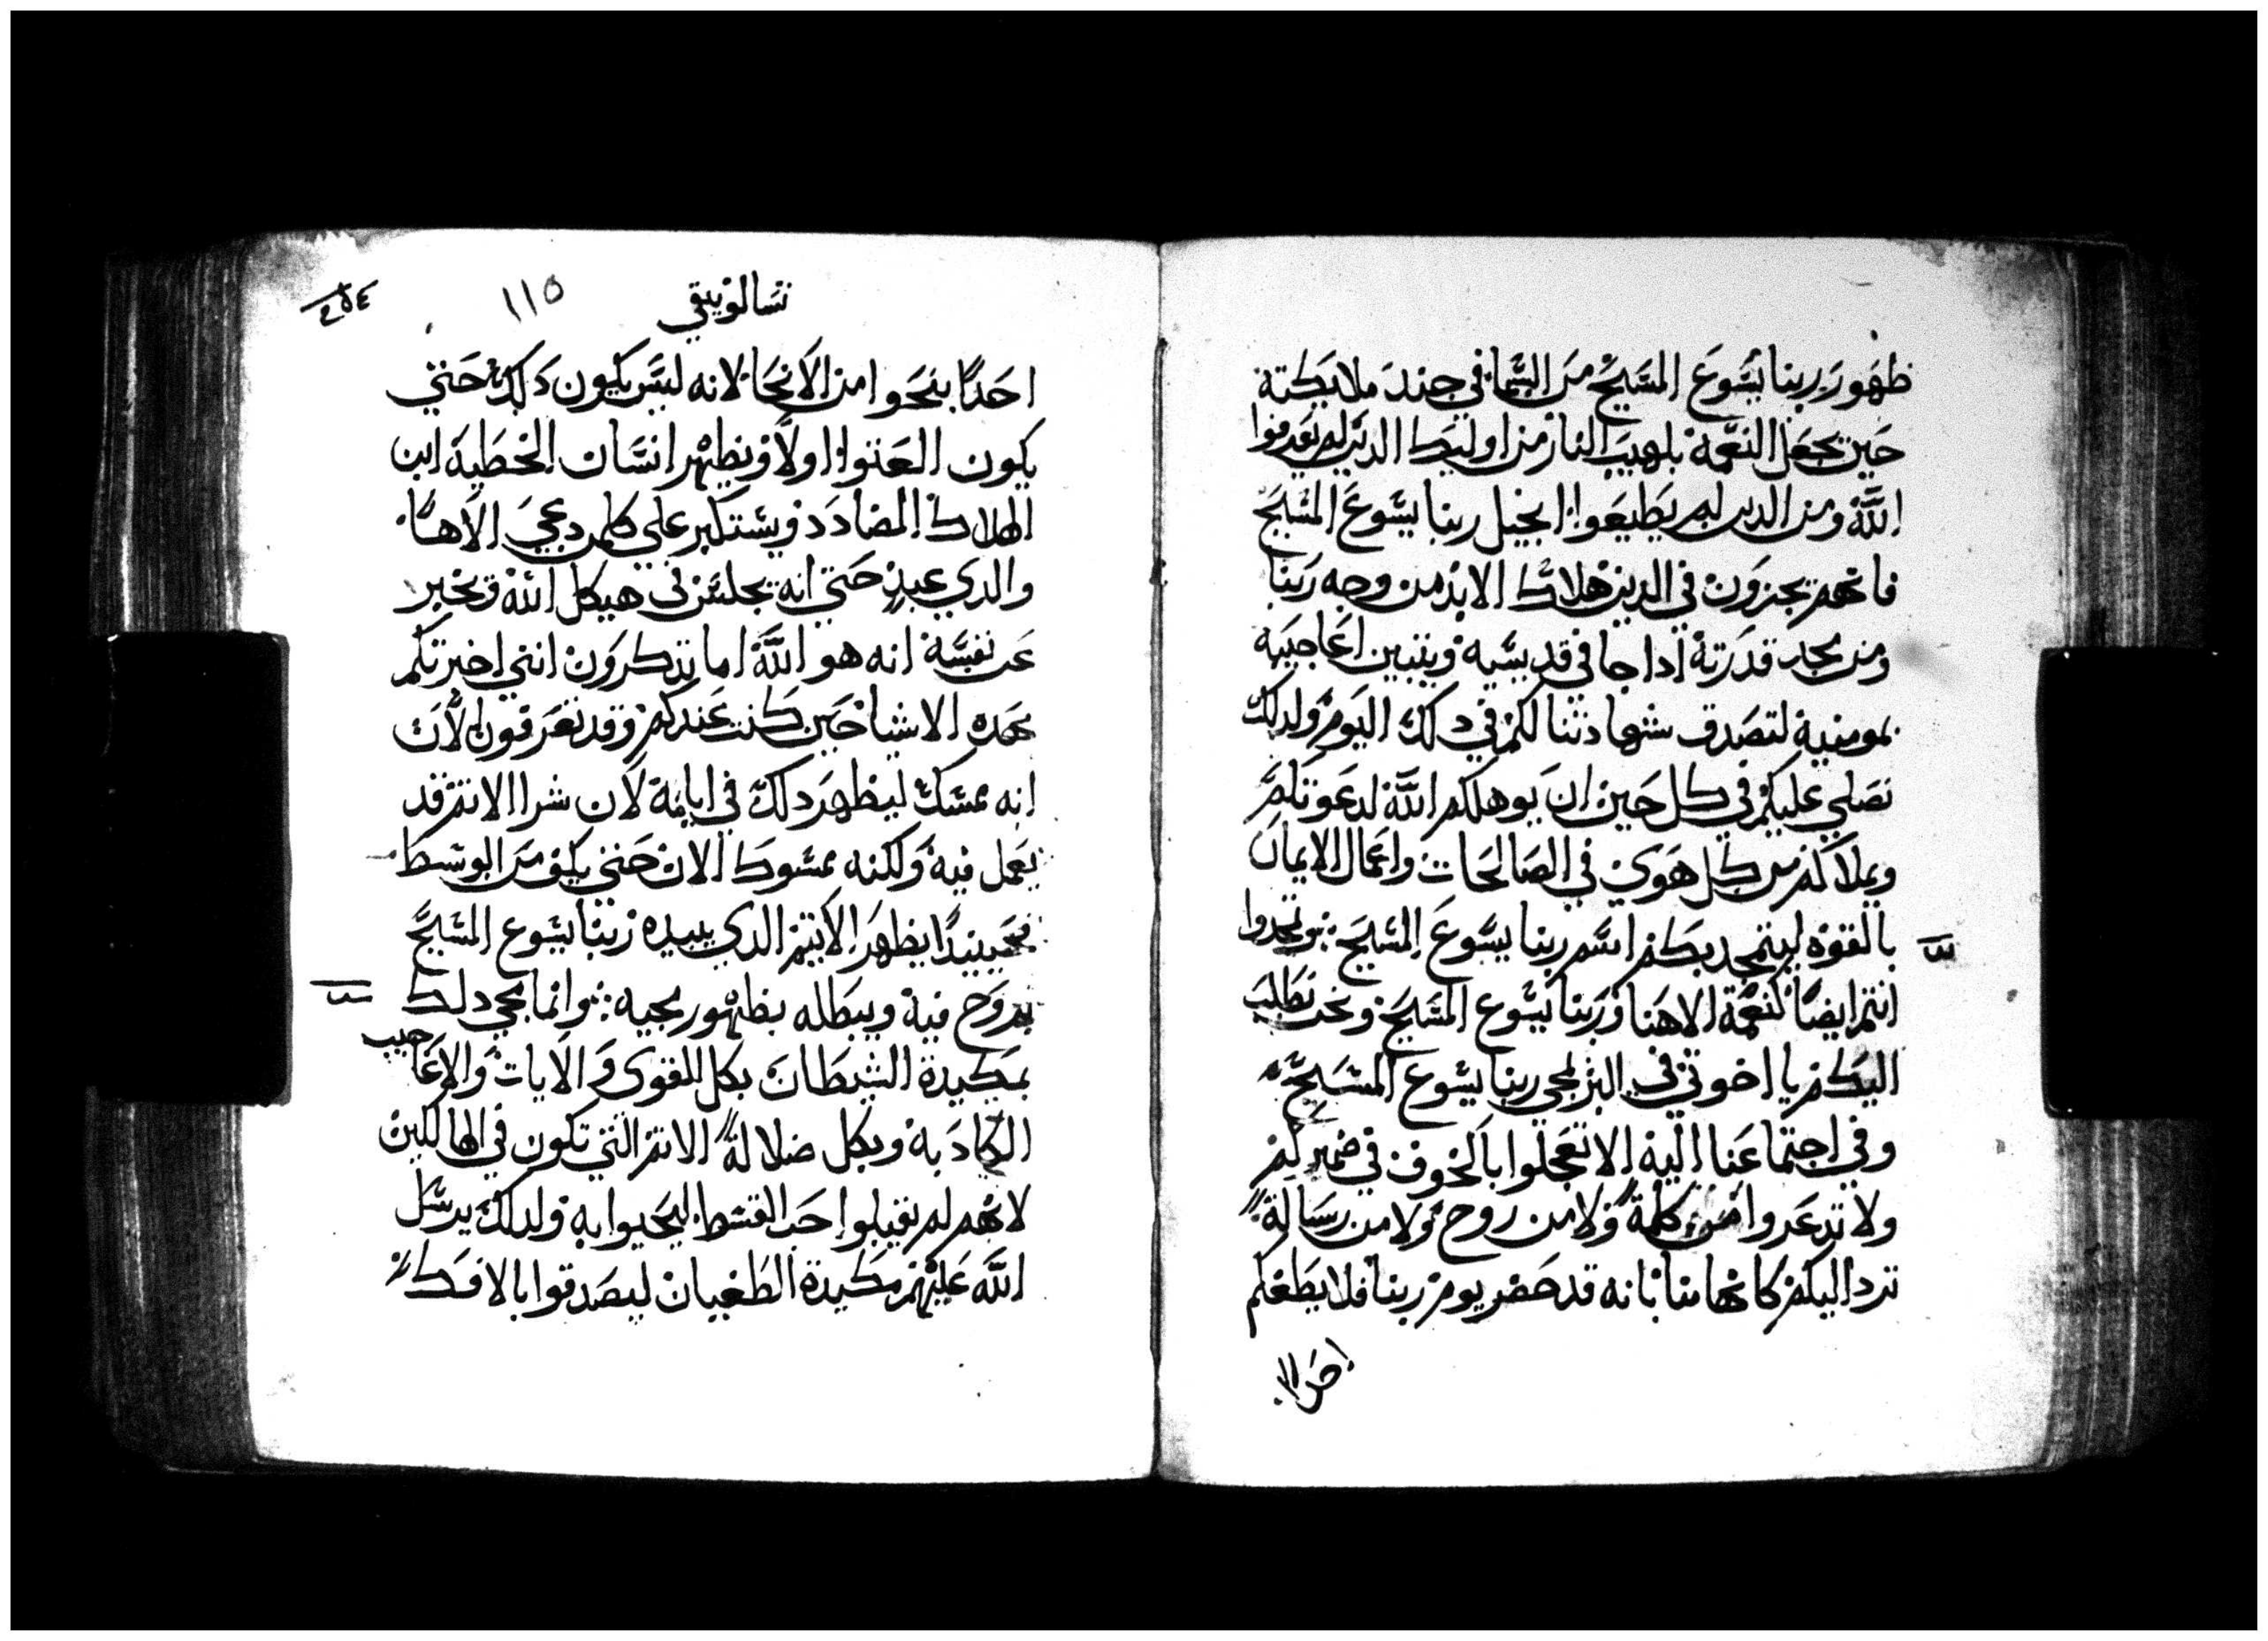 ظهور ربنا يسوع المسيح من السما في جند ملايكته
حين يجعل النقمة بلهيب النار من اوليك الدين لم يعرفوا
الله ومن الدين لم يطيعوا انجيل ربنا يسوع المسيح
فانهم يجزون في الدين هلاك الابد من وجه ربنا
ومن مجد قدرته ادا جا في قديسيه ويتبين اعاجيبه
بمومنيه لتصدق شهادتنا لكم في دلك اليوم ولدلك
نصلي عليكم في كل حين ان يوهلكم الله لدعوتكم
ويملاكم من كل هوي في الصالحات واعمال الايمان
بالقوه ليتمجد بكم اسم ربنا يسوع المسيح وتمجدوا
انتم ايضا كنعمة الاهنا وربنا يسوع المسيح ونحن نطلب
اليكم يا اخوتي في البر لمجي ربنا يسوع المسيح
وفي اجتماعنا اليه الا تعجلوا بالخوف في ضميركم
ولا تدعروا من كلمة ولا من روح ولا من رسالة
ترد اليكم كانها منا بانه قد حضر يوم ربنا فلا يطغكم
تسالونيقي
١١٥
احدا بنحوا من الانحا لانه ليس يكون دلك حتي
يكون العتوا اولا ويظهر انسان الخطية ابن
الهلاك المضادد ويستكبر علي كلمن دعي الاها
والدي عبد حتي انه يجلس في هيكل الله ويخبر
عن نفسه انه هو الله اما تدكرون انني اخبرتكم
بهده الاشيا حين كنت عندكم وقد تعرفون الان
انه ممسك ليظهر دلك في ايامه لان شرا الاثم قد
يعمل فيه ولكنه ممسوك الان حتي يكف من الوسط
فحينيدا يظهر الاثيم الدي يبيده ربنا يسوع المسيح
بروح فيه ويبطله بظهور مجيه وانما مجي دلك
بمكيدة الشيطان بكل القوي والايات والاعاجيب
الكادبه وبكل ضلالة الاثم التي تكون في الهالكين
لانهم لم يقبلوا حب القسط ليحيوا به ولدلك يرسل
الله عليهم مكيدة الطغيان ليصدقوا بالافك